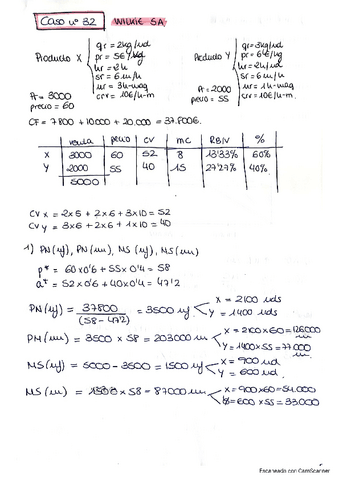 Caso nº 32 WILKIE SA
Producto X
qr = 2kg/ud
pr = 5€/kg
hr = 2h
sr = 6 m/h
ur = 3h-maq
crr = 10€/h-m
Pr = 3000
precio = 60
Producto Y
qr = 3kg/ud
pr = 6€/kg
hr = 2h
sr = 6 m/h
ur = 1h-maq
crr = 10€/h-m.
Pr = 2000
precio = 55
CF = 7800 + 10000 + 20.000 = 37.800€.
venta precio CV mc RBIV %
X 3000 60 52 8 13'33% 60%
Y 2000 55 40 15 27'27% 40%
5000
CV x = 2x5 + 2x6 + 3x10 = 52
CV y = 3x6 + 2x6 + 1x10 = 40
1) PN(uf), PN(um), MS(uf), MS(um)
p* = 60x0'6 + 55x0'4 = 58
a* = 52x0'6 + 40x0'4 = 47'2
PN(uf) = 37800 / (58-47'2) = 3500 uf
X = 2100 uds
Y = 1400 uds
PN(um) = 3500 x 58 = 203000 um
X = 2100x60 = 126000 um
Y = 1400x55 = 77.000 um
MS(uf) = 5000 - 3500 = 1500 uf
X = 900 ud
Y = 600 ud.
MS(um) = 1500 x 58 = 87000 um
X = 900x60 = 54.000
Y = 600 x 55 = 33.000
Escaneado con CamScanner